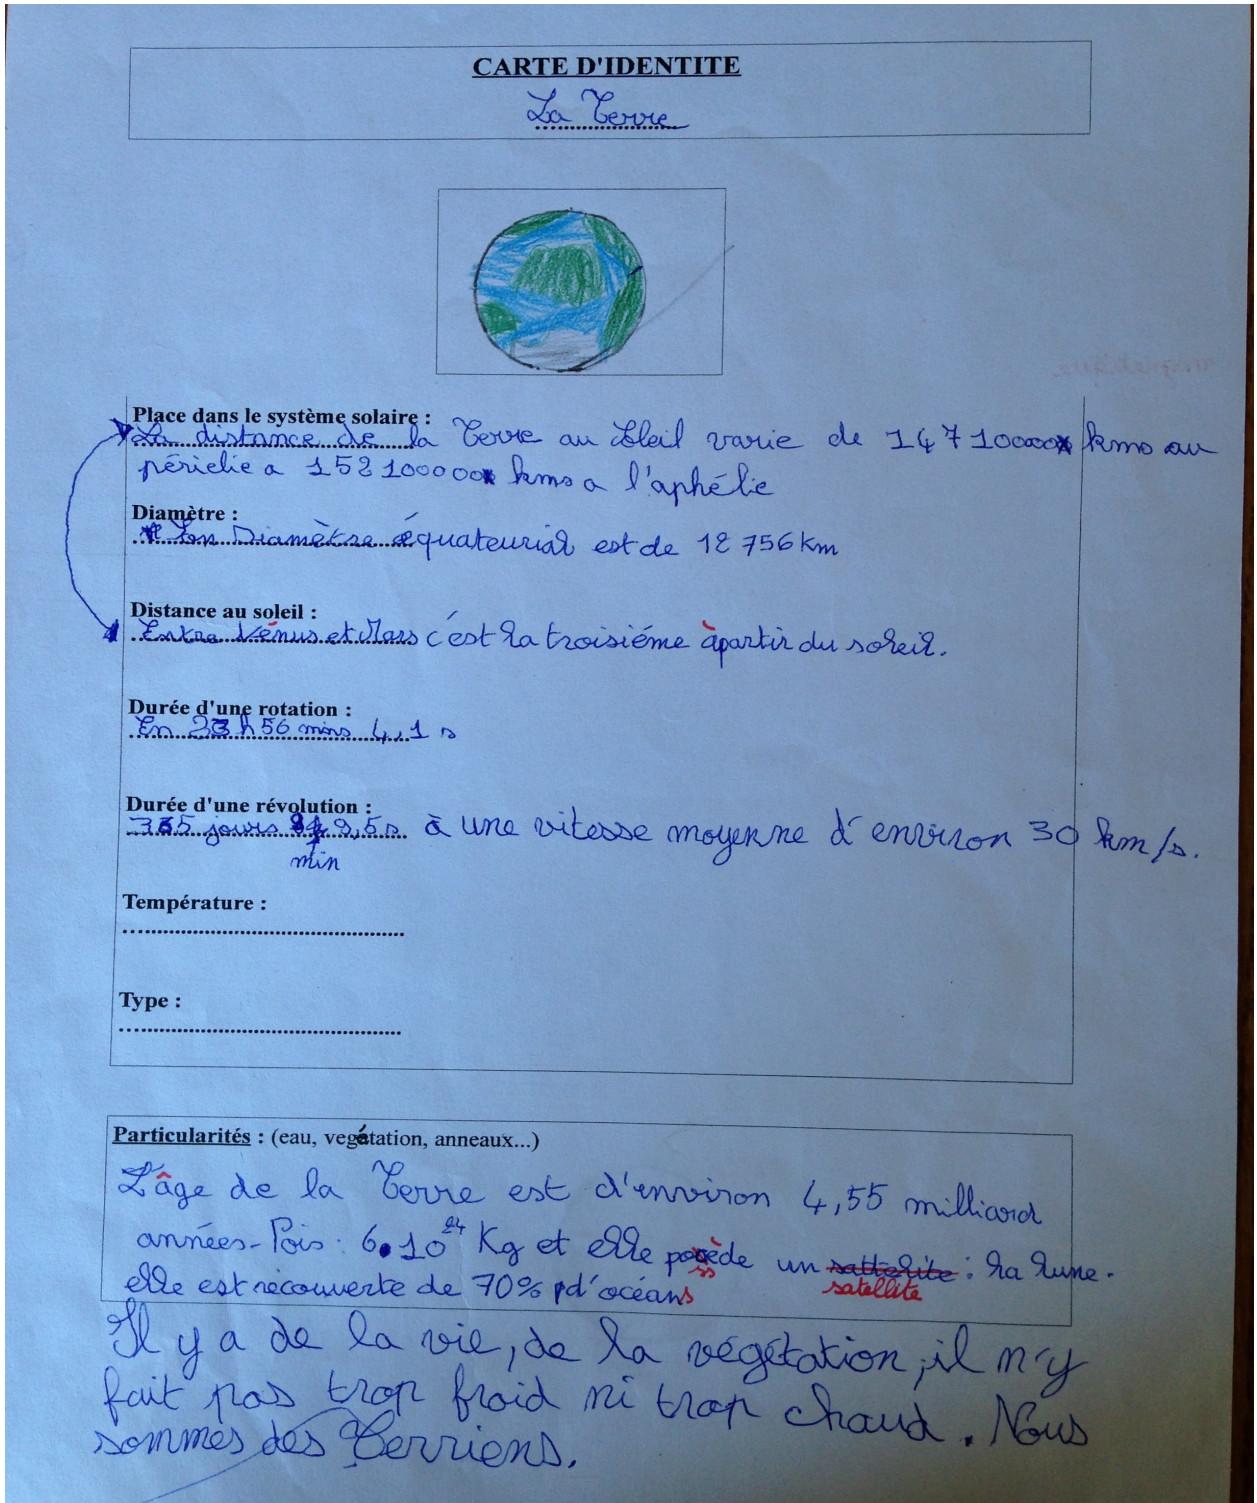 CARTE D'IDENTITE
La Terre
Place dans le système solaire :
La distance de la Terre au Soleil varie de 147 100000 kms au
périelie a 152 100000 kms a l'aphélie
Diamètre :
Son Diamètre équateurial est de 12 756 km
Distance au soleil :
Entre Vénus et Mars c'est la troisiéme àpartir du soleil.
Durée d'une rotation :
En 23 h 56 mins 4,1 s
Durée d'une révolution :
365 jours 9,5s à une vitesse moyenne d'environ 30 km/s.
min
Température :
Type :
Particularités : (eau, vegétation, anneaux...)
L'âge de la Terre est d'environ 4,55 milliard
années-Pois : 6.10²⁴ Kg et elle possède un sattelite : la lune.
satellite
elle est récouverte de 70% d'océans
Il y a de la vie, de la végétation, il n'y
fait pas trop froid ni trop chaud. Nous
sommes des Terriens.